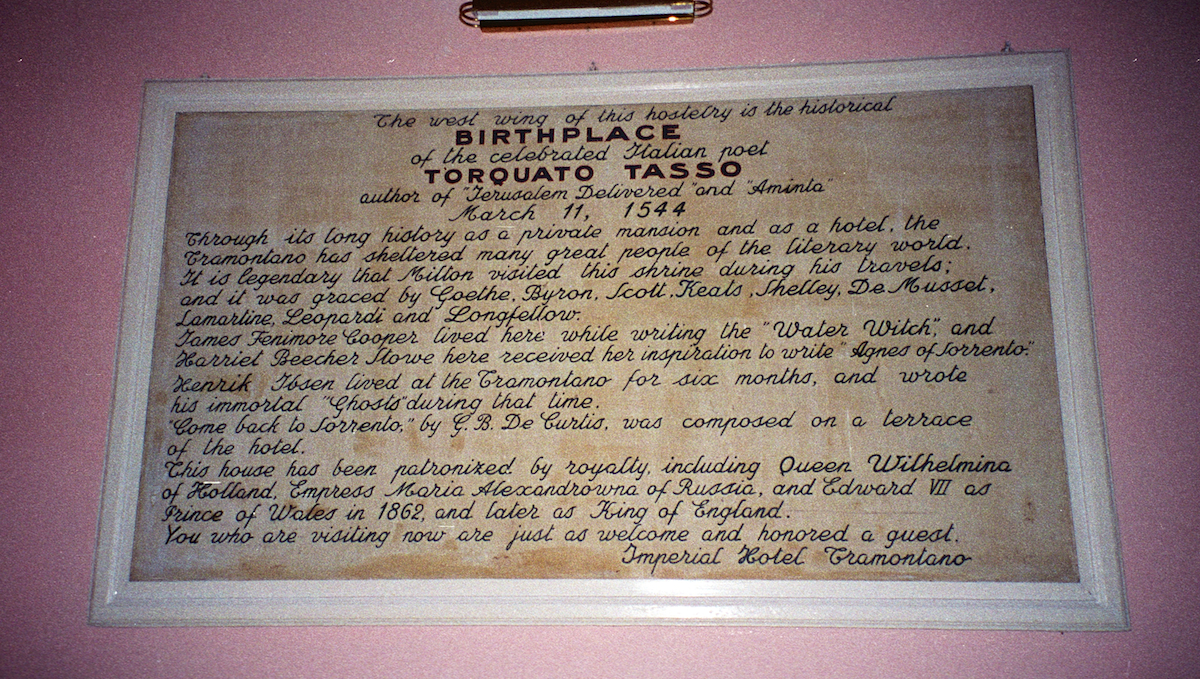 The west wing of this hostelry is the historical
BIRTHPLACE
of the celebrated Italian poet
TORQUATO TASSO
author of "Jerusalem Delivered" and "Aminta"
March 11, 1544
Through its long history as a private mansion and as a hotel, the
Tramontano has sheltered many great people of the literary world.
It is legendary that Milton visited this shrine during his travels;
and it was graced by Goethe, Byron, Scott, Keats, Shelley, De Musset,
Lamartine, Leopardi and Longfellow.
James Fenimore Cooper lived here while writing the "Water Witch", and
Harriet Beecher Stowe here received her inspiration to write "Agnes of Sorrento."
Henrik Ibsen lived at the Tramontano for six months, and wrote
his immortal "Ghosts" during that time.
"Come back to Sorrento," by G. B. De Curtis, was composed on a terrace
of the hotel.
This house has been patronized by royalty, including Queen Wilhelmina
of Holland, Empress Maria Alexandrowna of Russia, and Edward VII as
Prince of Wales in 1862, and later as King of England.
You who are visiting now are just as welcome and honored a guest.
Imperial Hotel Tramontano